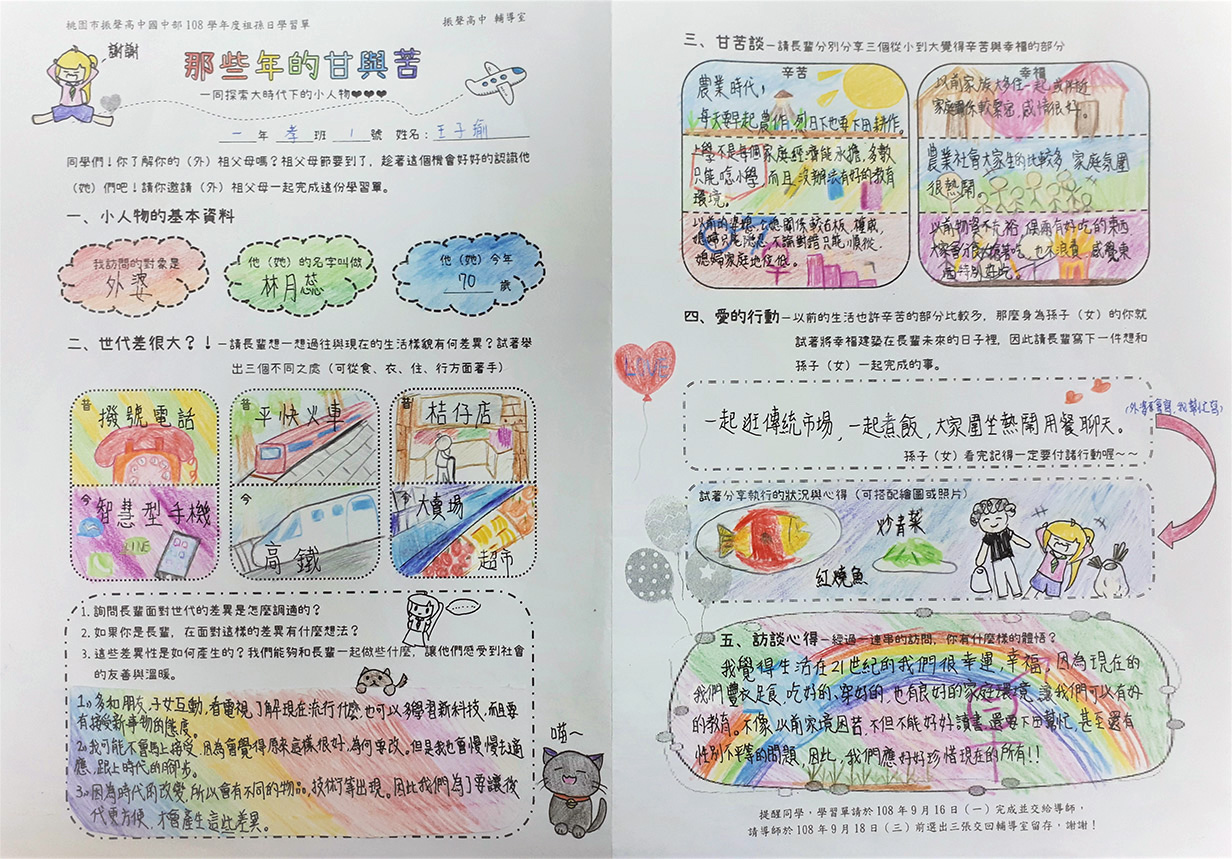 桃園市振聲高中國中部 108 學年度祖孫日學習單
振聲高中 輔導室
謝謝
那些年的甘與苦
一同探索大時代下的小人物❤❤❤
一 年 孝 班 1 號 姓名：王子瑜
同學們！你了解你的（外）祖父母嗎？祖父母節要到了，趁著這個機會好好的認識他
（她）們吧！請你邀請（外）祖父母一起完成這份學習單。
一、小人物的基本資料
我訪問的對象是
外婆
他（她）的名字叫做
林月蕊
他（她）今年
70 歲
二、世代差很大？！—請長輩想一想過往與現在的生活樣貌有何差異？試著舉
出三個不同之處（可從食、衣、住、行方面著手）
昔
撥號電話
今
智慧型手機
LINE
昔
平快火車
今
高鐵
昔
柑仔店
今
大賣場
超市
1. 詢問長輩面對世代的差異是怎麼調適的？
2. 如果你是長輩，在面對這樣的差異有什麼想法？
3. 這些差異性是如何產生的？我們能夠和長輩一起做些什麼，讓他們感受到社會
的友善與溫暖。
1.多和朋友、子女互動，看電視，了解現在流行什麼，也可以多學習新科技，而且要
有接受新事物的態度。
2.我可能不會馬上接受，因為會覺得原來這樣很好，為何要改。但是我也會慢慢去適
應，跟上時代的腳步。
3.因為時代的改變，所以會有不同的物品，技術等出現。因此我們為了要讓後
代更方便，才會產生這些差異。
喵～
三、甘苦談—請長輩分別分享三個從小到大覺得辛苦與幸福的部分
辛苦
農業時代，
每天要早起農作，烈日下也要下田耕作。
上學不是每個家庭經濟能承擔，多數
只能唸小學，而且沒辦法有好的教育
環境。
以前的婆媳 關係較古板、權威，
媳婦只能 不論對錯只能順從，
媳婦家庭地位低。
幸福
以前家族大多住一起，或附近
家庭關係較緊密，感情很好。
農業社會大家生的比較多，家庭氛圍
很熱鬧。
以前物資不充裕，偶爾有好吃的東西
大家會 搶著吃，也不浪費，感覺東
西特別好吃。
四、愛的行動—以前的生活也許辛苦的部分比較多，那麼身為孫子（女）的你就
試著將幸福建築在長輩未來的日子裡，因此請長輩寫下一件想和
孫子（女）一起完成的事。
LOVE
一起逛傳統市場，一起煮飯，大家圍坐熱鬧用餐聊天。
孫子（女）看完記得一定要付諸行動喔～～
試著分享執行的狀況與心得（可搭配繪圖或照片）
紅燒魚
炒青菜
五、訪談心得—經過一連串的訪問，你有什麼樣的體悟？
我覺得生活在21世紀的我們很幸運，幸福，因為現在的
我們豐衣足食，吃好的，穿好的，也有良好的家庭環境，讓我們可以有好
的教育。不像以前家境困苦，不但不能好好讀書，還要下田幫忙，甚至還有
性別不平等的問題，因此，我們應好好珍惜現在的所有!!
提醒同學，學習單請於 108 年 9 月 16 日（一）完成並交給導師，
請導師於 108 年 9 月 18 日（三）前選出三張交回輔導室留存，謝謝！